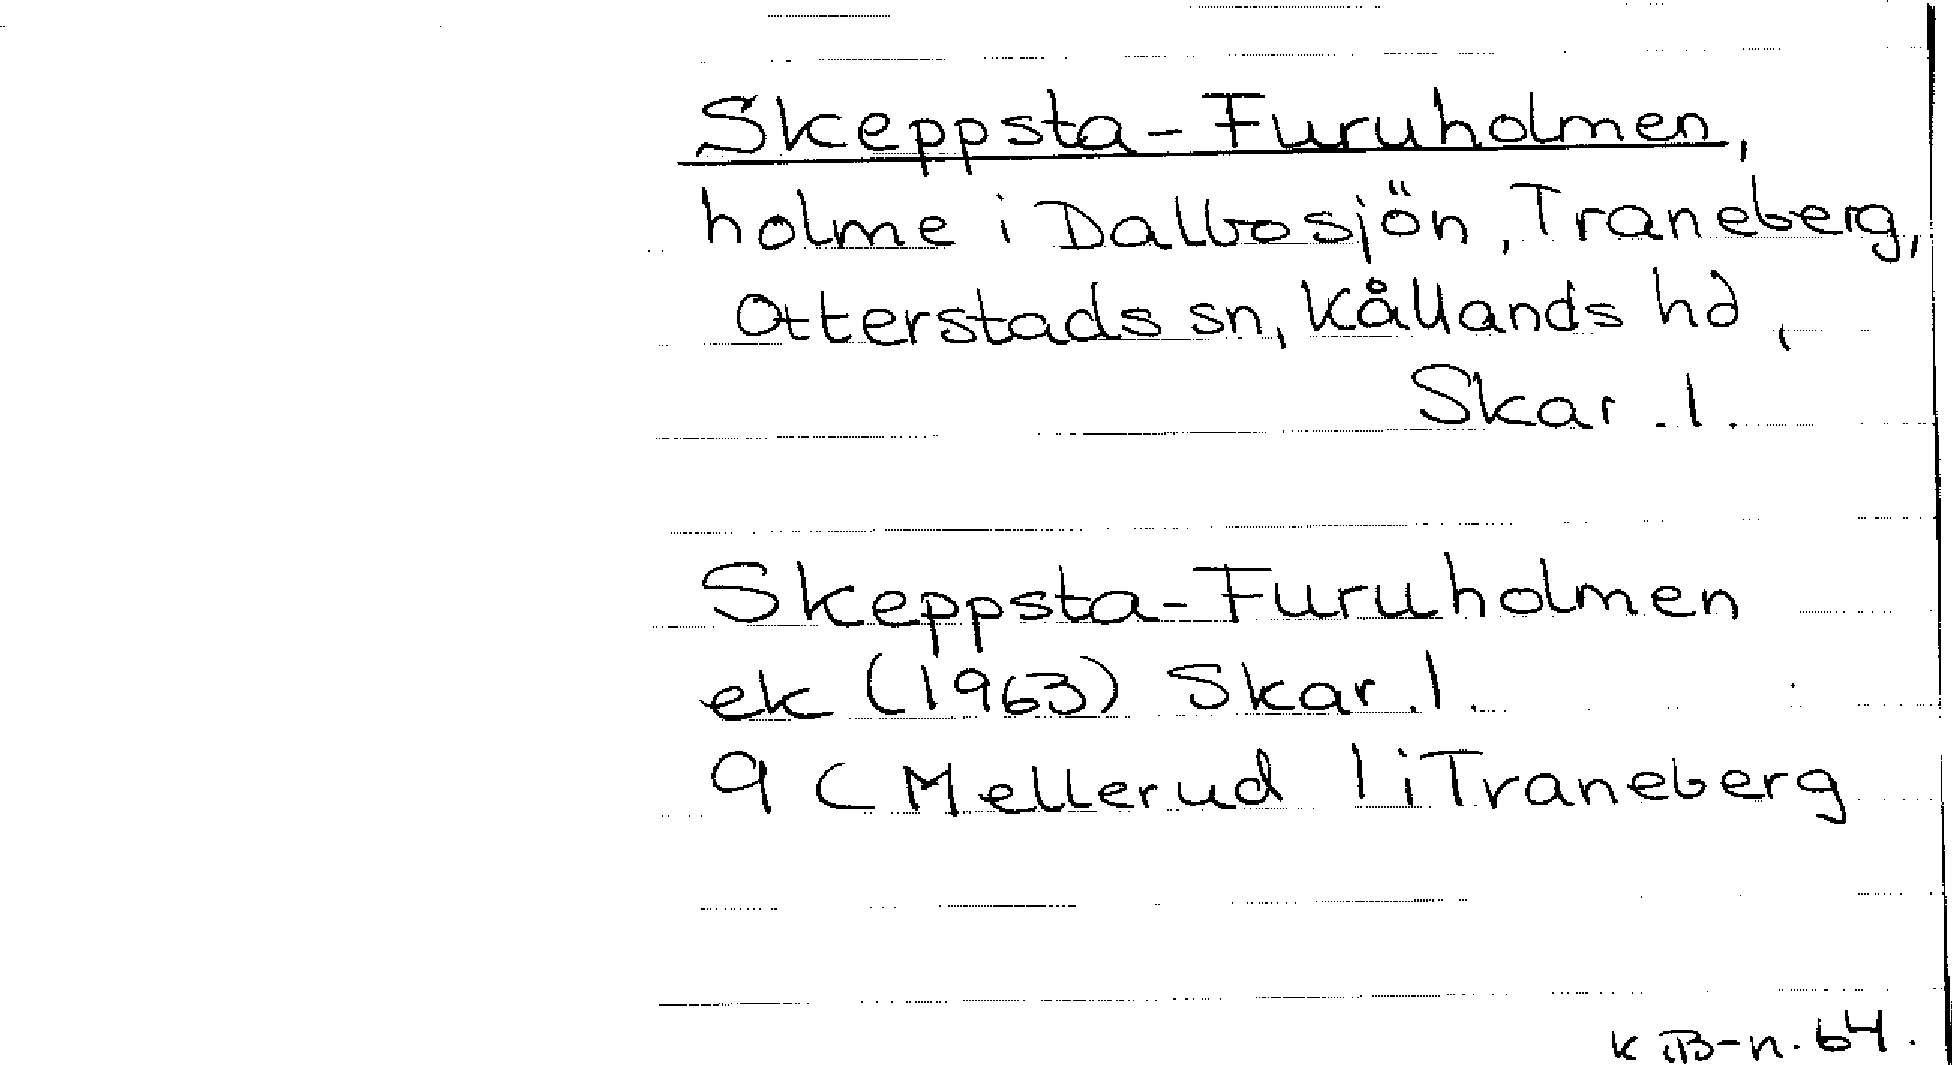 Skeppsta-Furuholmen,
holme i Dalbosjön, Traneberg,
Otterstads sn, Kållands hd,
Skar. l.
Skeppsta-Furuholmen
ek (1963) Skar. l.
9 C Mellerud l i Traneberg
64.